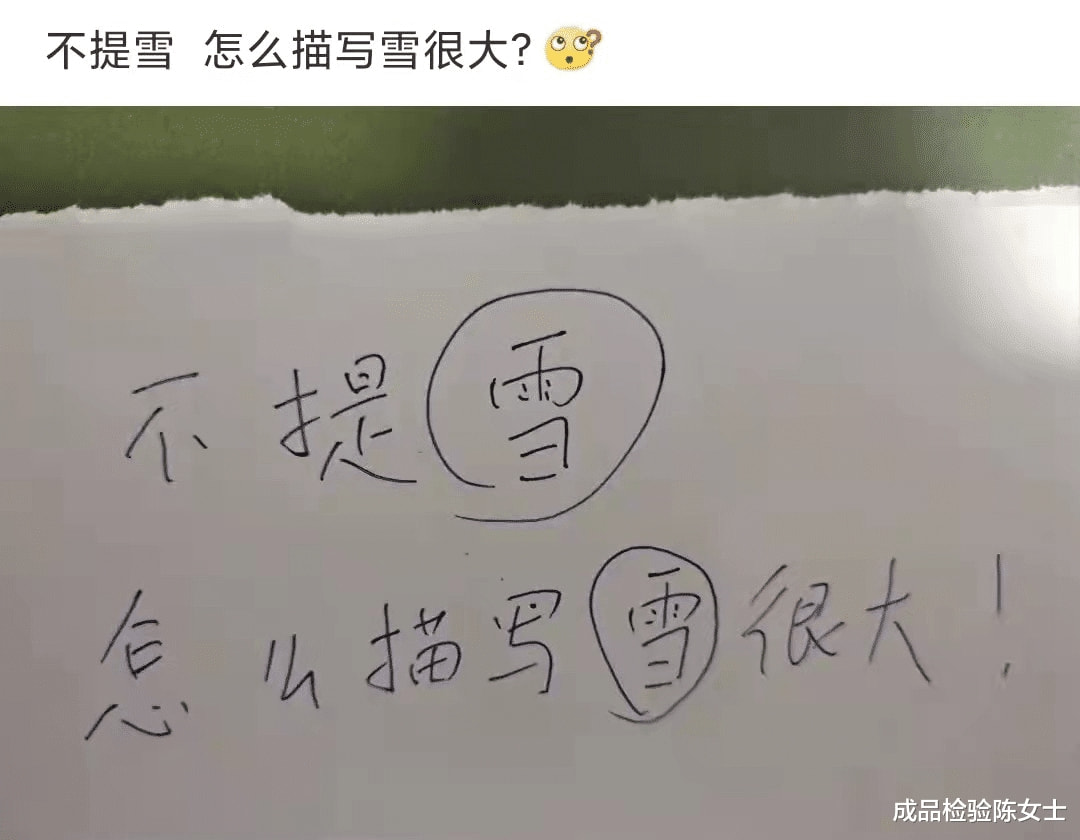 不提雪 怎么描写雪很大?
不提雪
怎么描写雪很大！
成品检验陈女士